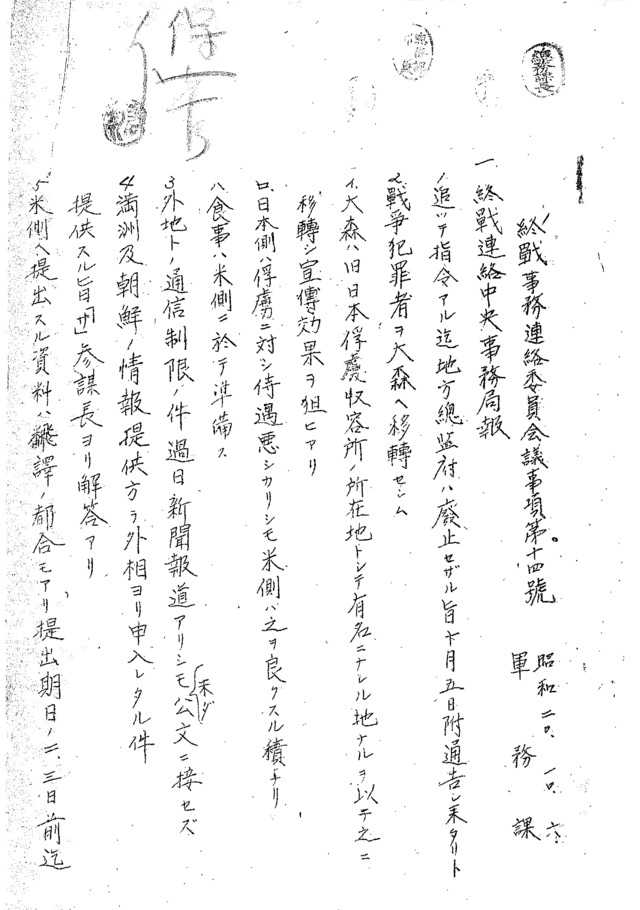 保
終戰事務連絡委員会議事項第十四號
昭和二〇、一〇、六
軍務課
一 終戰連絡中央事務局報
1、追ツテ指令アル迄地方總監府ハ廢止セザル旨十月五日附通告シ来タリト
2、戰爭犯罪者ヲ大森ヘ移轉セシム
イ、大森ハ旧日本俘虜収容所ノ所在地トシテ有名ニナレル地ナルヲ以テ之ニ
移轉シ宣傳効果ヲ狙ヒアリ
ロ、日本側ハ俘虜ニ対シ待遇悪シカリシモ米側ハ之ヲ良クスル積ナリ
ハ、食事ハ米側ニ於テ準備ス
3、外地トノ通信制限ノ件過日新聞報道アリシモ未ダ公文ニ接セズ
4、満洲及朝鮮ノ情報提供方ヲ外相ヨリ申入レタル件
提供スル旨「サ」参謀長ヨリ解答アリ
5、米側ヘ提出スル資料ハ飜譯ノ都合モアリ提出期日ノ二、三日前迄